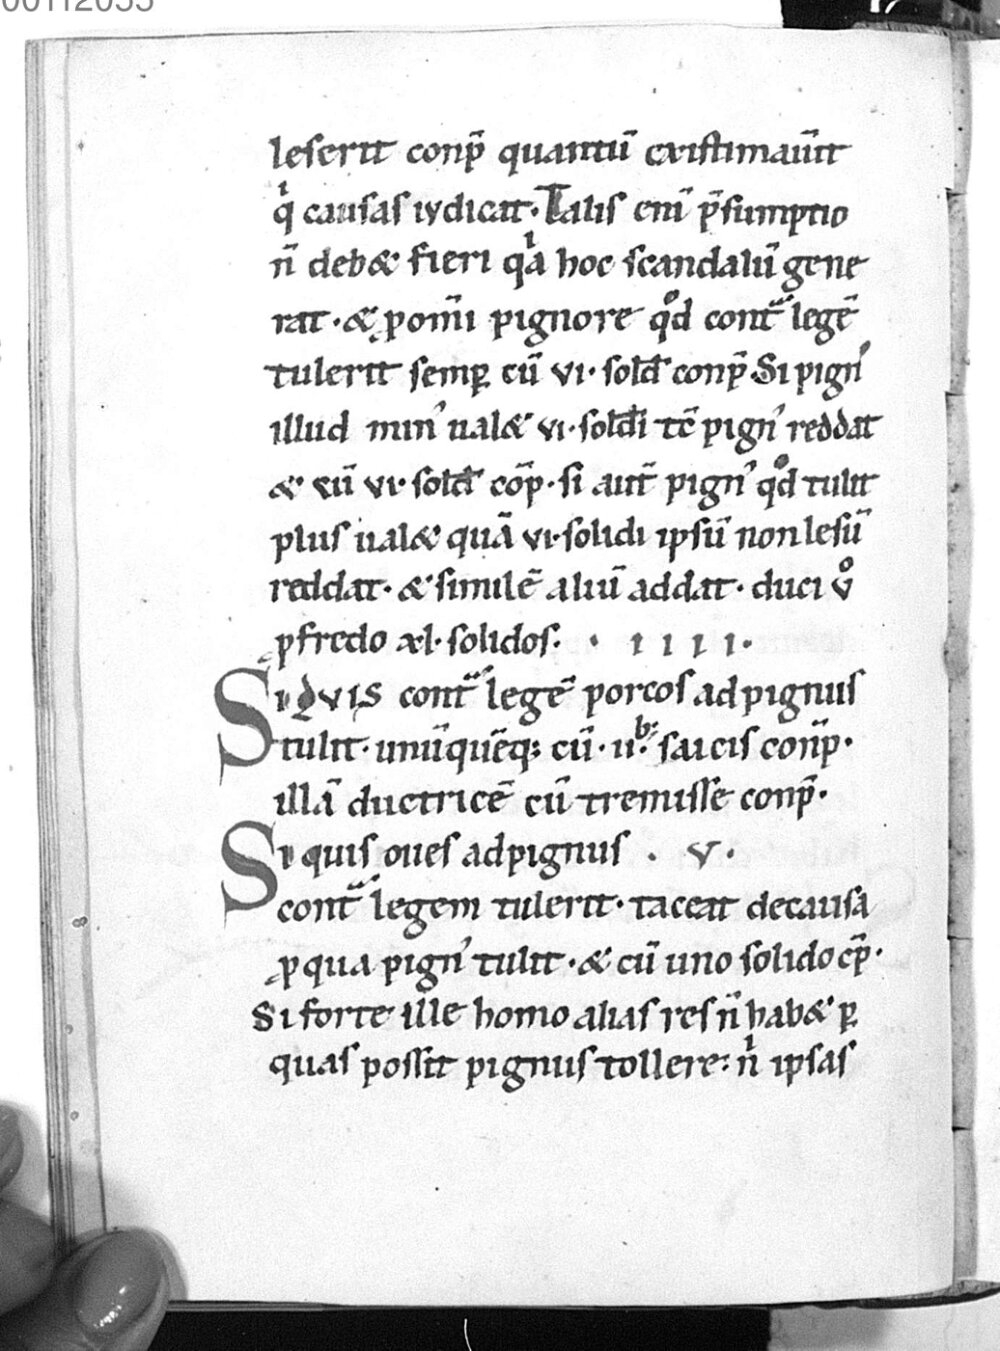 00112055
leserit conp̄ quantū existimaūit
qͥ causas iudicat· Talis enī p̄sumptio
n̄ deb& fieri qͥa hoc scandalū gene
rat· & p̱ om̄i pignore qͦd contᷓ legē
tulerit semp̱ cū vi· sold̄ conp̄ Si pign̓
illud min̓ ual& vi· sold̄i tc̄ pign̓ reddat
& cū vi· sold̄ cōp· si aut̄ pign̓ qͦd tulit
plus ual& quā vi· solidi ipsū non lesū
reddat· & similē aliū addat· duci vͦ
p̱ fredo xl· solidos· · ıııı·
Si Quis contᷓ legē porcos ad pignus
tulit· unūquēq; cū· ii·b; saicis conp̄·
illā ductricē cū tremisse conp̄·
Si quis oues ad pignus · v·
contᷓ legem tulerit· taceat de causa
p̱ qua pign̓ tulit· & cū uno solido cp̄·
Si forte ille homo alias res n̄ hab& p̱
quas possit pignus tollere: nͥ ipsas